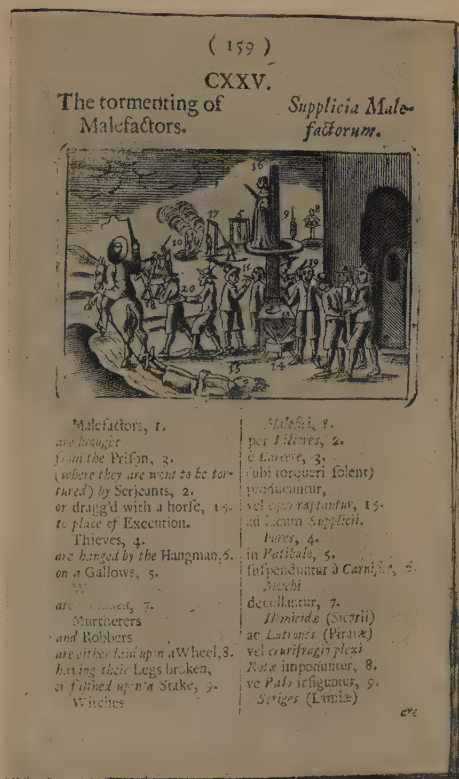 ( 159 )
CXXV.
The tormenting of
Malefactors.
Supplicia Male-
factorum.
Malefactors, 1.
are brought
from the Prison, 3.
(where they are wont to be tor-
tured) by Serjeants, 2.
or dragg'd with a horse, 15.
to place of Execution.
Thieves, 4.
are hanged by the Hangman, 6.
on a Gallows, 5.
are 7.
Murtherers
and Robbers
are either laid upon a Wheel, 8.
having their Legs broken,
or fastned upon a Stake, 9.
Witches
Malefici, 1.
per Lictores, 2.
è Carcere, 3.
(ubi torqueri solent)
producuntur,
vel equo raptantur, 15.
ad locum Supplicii.
Fures, 4.
in Patibulo, 5.
suspenduntur à Carnifice, 6.
Mœchi
decollantur, 7.
Homicidæ (Sicarii)
ac Latrones (Piratæ)
vel crurifragio plexi
Rotæ imponuntur, 8.
vel Palo infiguntur, 9.
Striges (Lamiæ)